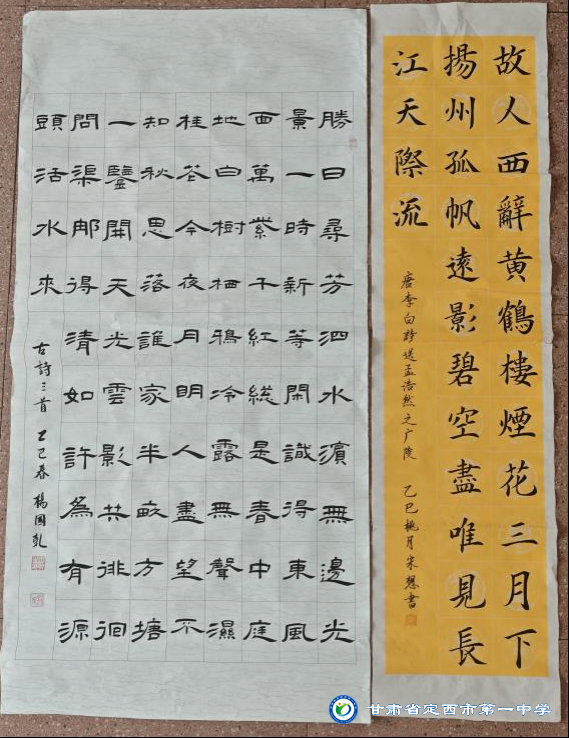 勝日尋芳泗水濱無邊光
景一時新等閑識得東風
面萬紫千紅總是春中庭
地白樹栖鴉冷露無聲濕
桂花今夜月明人盡望不
知秋思落誰家半畝方塘
一鑒開天光雲影共徘徊
問渠那得清如許為有源
頭活水來
古詩三首 乙巳春 楊國
故人西辭黃鶴樓煙花三月下
揚州孤帆遠影碧空盡唯見長
江天際流
唐李白詩送孟浩然之广陵 乙巳桃月宋慧書
甘肃省定西市第一中学